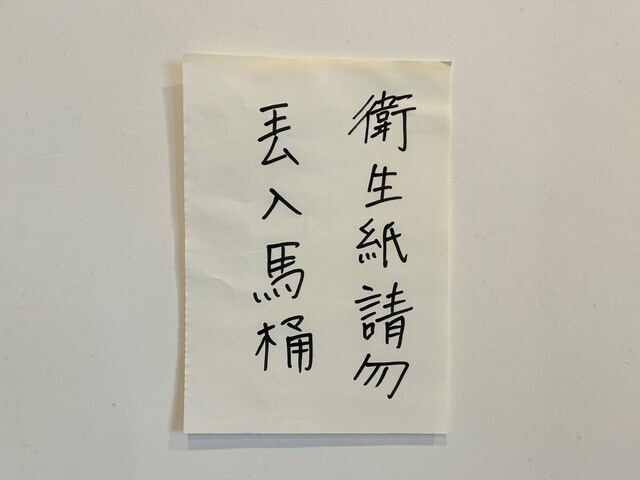 衛生紙請勿
丟入馬桶